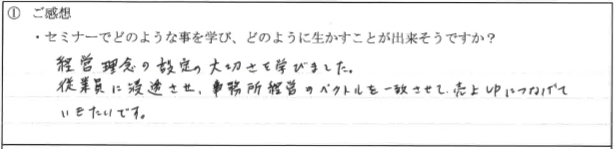 ① ご感想
・セミナーでどのような事を学び、どのように生かすことが出来そうですか？
経営理念の設定の大切さを学びました。
従業員に浸透させ、事務所経営のベクトルを一致させて、売上UPにつなげて
いきたいです。